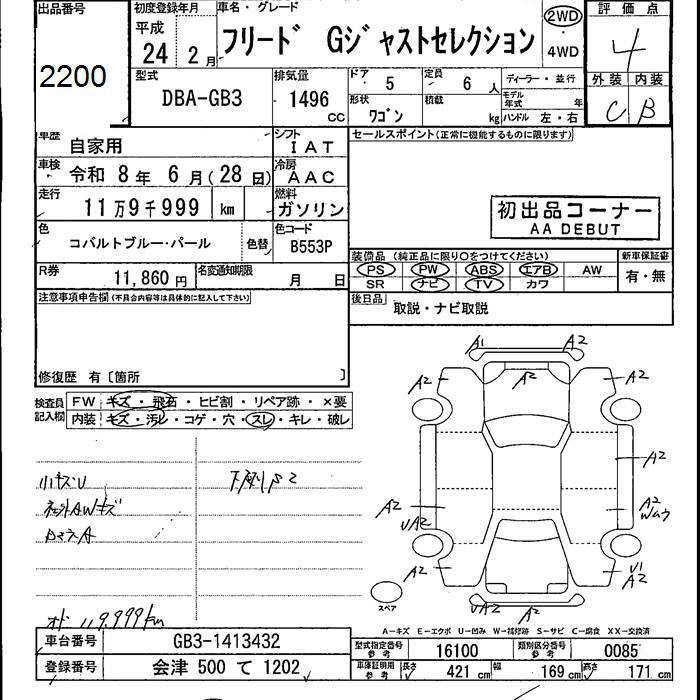 出品番号
2200
初度登録年月
平成
24 2月
車名・グレード
フリード Gジャストセレクション
2WD
・
4WD
評価点
4
外装 内装
C B
型式
DBA-GB3
排気量
1496
CC
ドア
5
定員
6 人
形状
ワゴン
積載
kg
ディーラー・並行
モデル
年式 年
ハンドル 左・右
車歴
自家用
シフト
IAT
車検
令和 8年 6月(28日)
冷房
AAC
走行
11万9千999 km
燃料
ガソリン
色
コバルトブルー・パール
色替
色コード
B553P
R券
11,860円
名変通知期限
月 日
セールスポイント(正常に機能するものに限ります)
初出品コーナー
AA DEBUT
装備品 (純正品に限り○をつけてください)
PS PW ABS エアB AW
SR ナビ TV カワ
新車保証書
有・無
後日品
取説・ナビ取説
注意事項申告欄(不具合内容等は具体的に記入して下さい)
修復歴 有〔箇所 〕
検査員
記入欄
FW キズ・飛石・ヒビ割・リペア跡・×要
内装 キズ・汚レ・コゲ・穴・スレ・キレ・破レ
小キズU
オド 119,999km
A1 A2
A2 A2 A2
A2
A2 UA2
A2 Wムラ
A2 U1 A2
UA2 A2
スペア
A―キズ E―エクボ U―凹み W―補修跡 S―サビ C―腐食 XX―交換済
車台番号
GB3-1413432
登録番号
会津 500 て 1202
型式指定番号
参考
16100
類別区分番号
参考
0085
車庫証明用
参考
長さ 421 cm 幅 169 cm 高さ 171 cm